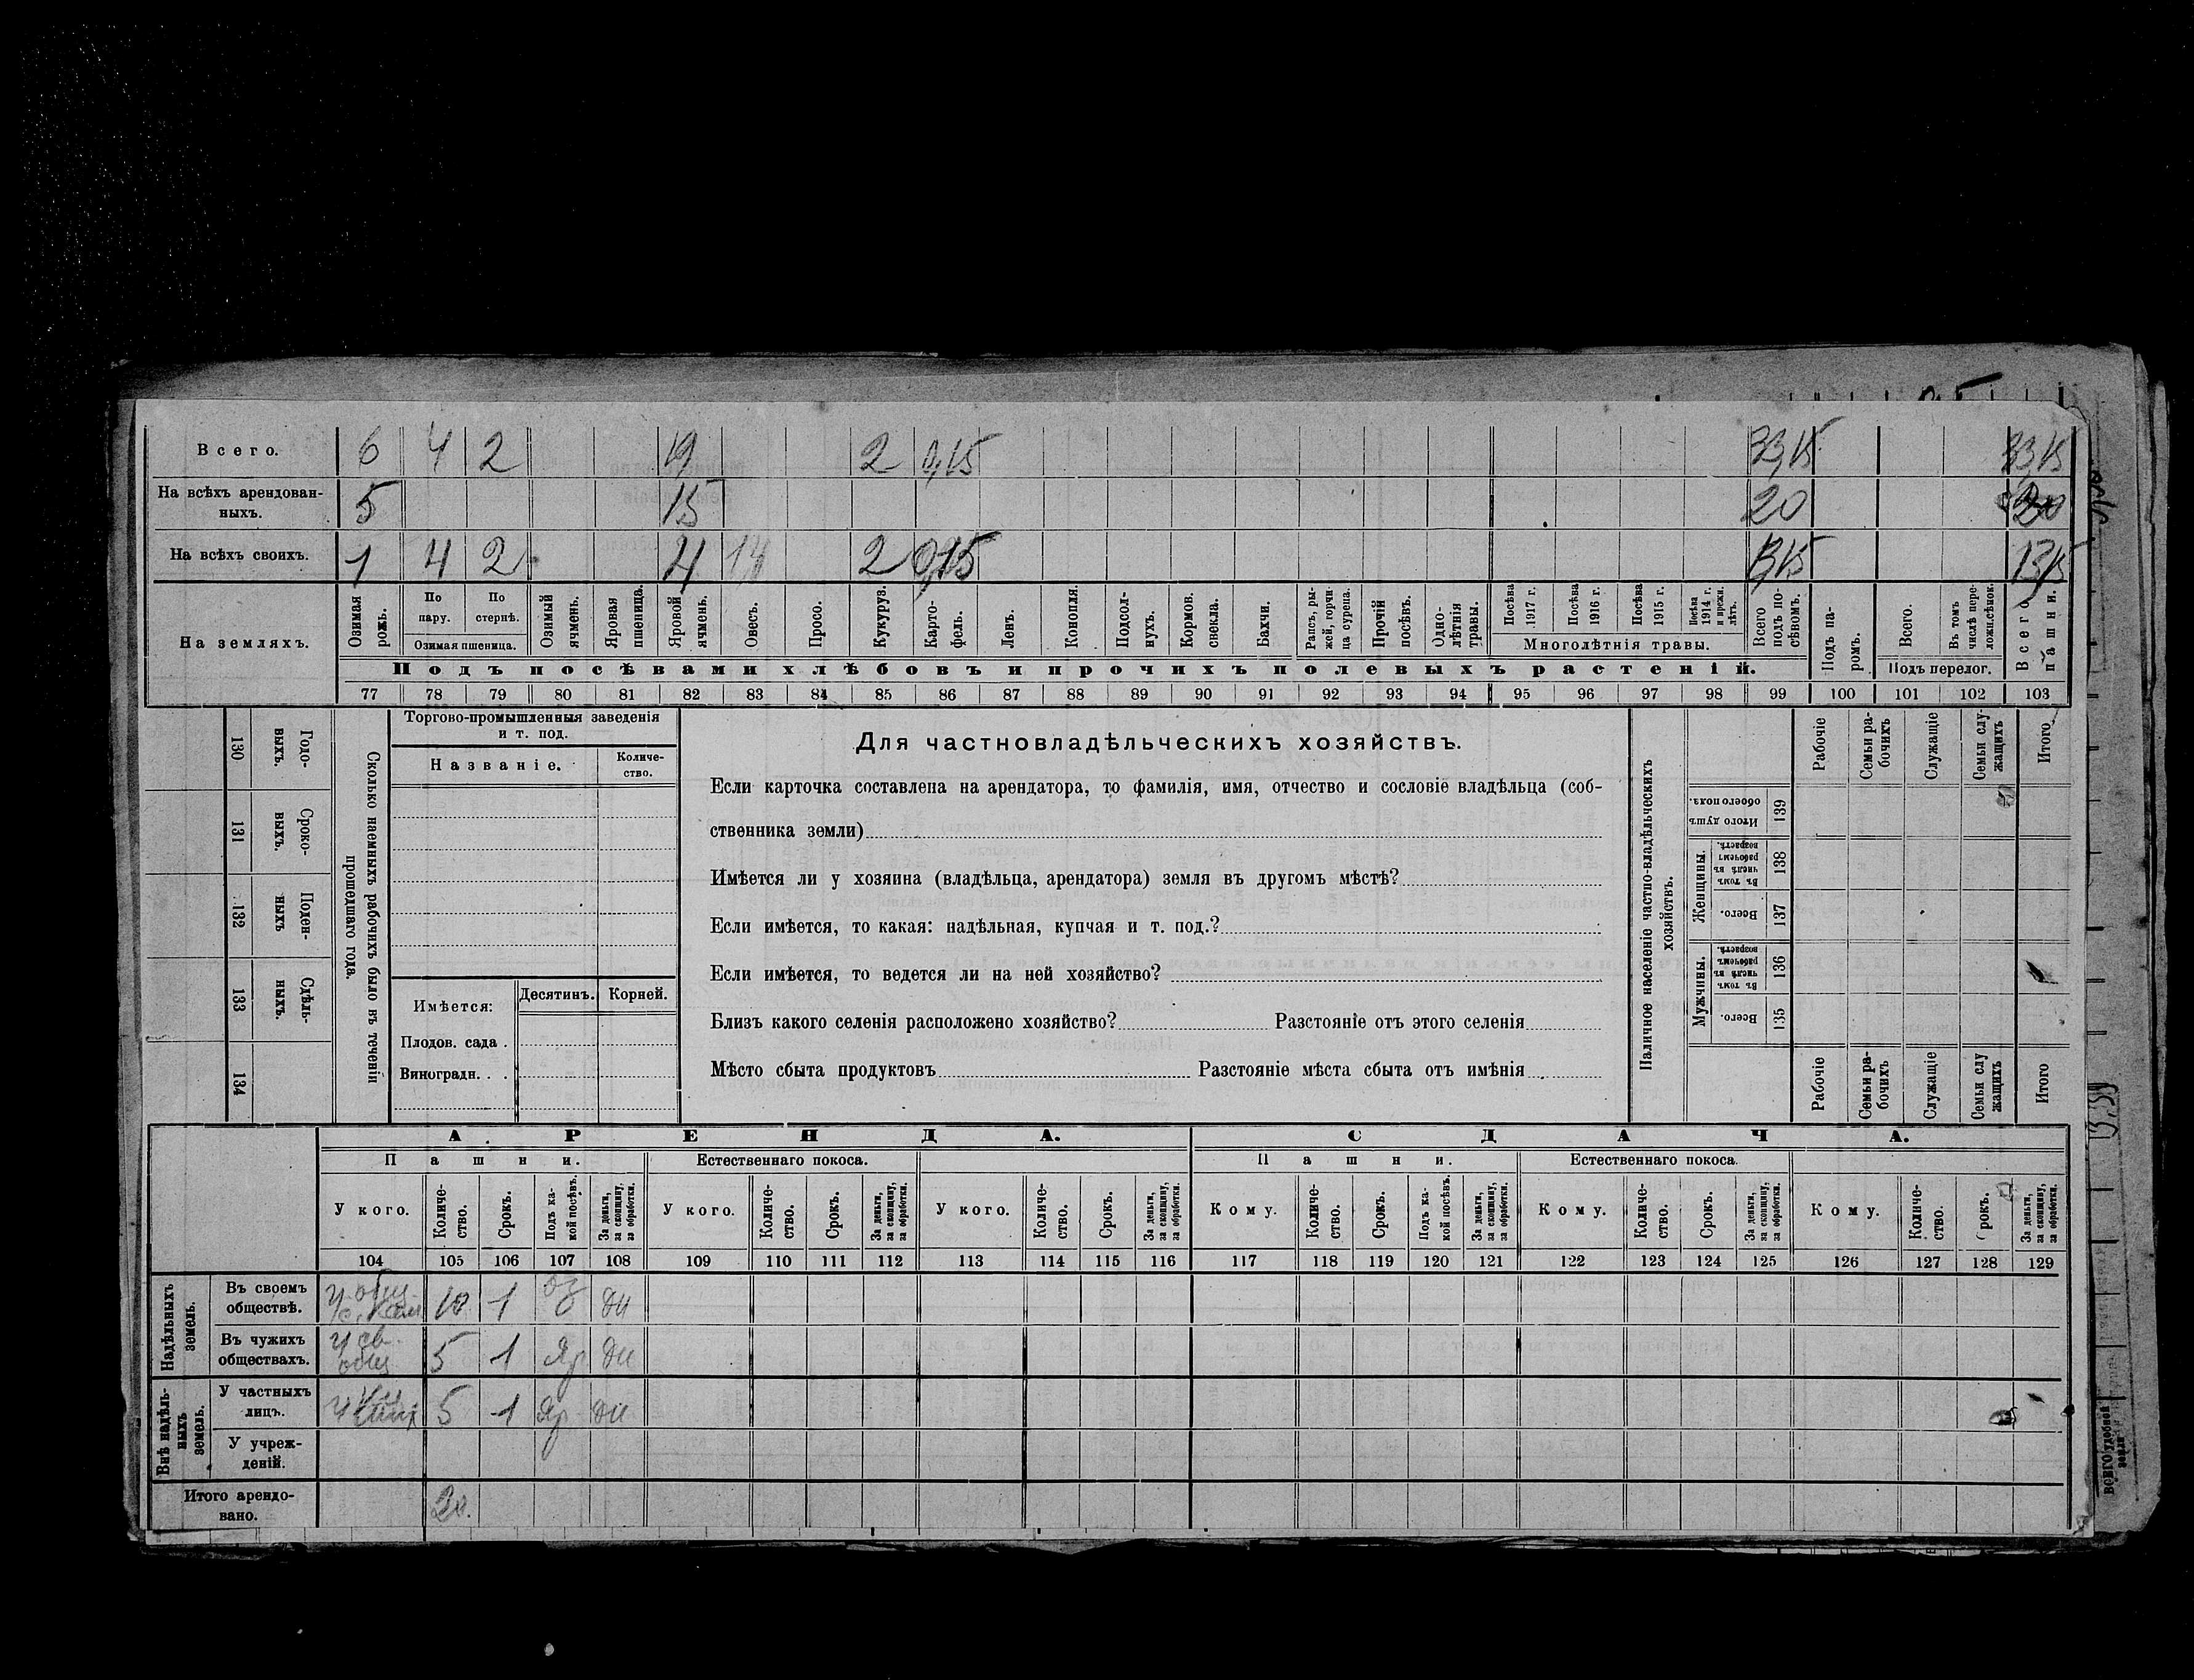 Всего. 6 4 2 19 2 0,15 33,15 33,15
На всѣхъ арендован-
ныхъ. 5 15 20 20
На всѣхъ своихъ. 1 4 2 4 2 0,15 13,15 13,15
На земляхъ.
Озимая рожь.
По пару.
По стернѣ.
Озимая пшеница.
Озимый ячмень.
Яровая пшеница.
Яровой ячмень.
Овесъ.
Просо.
Кукуруз.
Карто-
фель.
Ленъ.
Конопля.
Подсол-
нухъ.
Кормов. свекла.
Бахчи.
Рапсъ, ры-
жей, горчи-
ца сурепа.
Прочій посѣвъ.
Одно-
лѣтнія травы.
Посѣва 1917 г.
Посѣва 1916 г.
Посѣва 1915 г.
Посѣва 1914 г. и прежн. лѣтъ.
Многолѣтнія травы.
Всего подъ по-
сѣвомъ.
Подъ па-
ромъ.
Всего.
Въ томъ числѣ пере-
ложн.сѣнок.
Подъ перелог.
Всего пашни.
Подъ посѣвами хлѣбовъ и прочихъ полевыхъ растеній.
77 78 79 80 81 82 83 84 85 86 87 88 89 90 91 92 93 94 95 96 97 98 99 100 101 102 103
130 Годо-
выхъ.
131 Сроко-
выхъ.
132 Поден-
ныхъ
133 Сдѣль-
ныхъ.
134
Сколько наемныхъ рабочихъ было въ теченіи
прошедшаго года.
Торгово-промышленныя заведенія
и т. под.
Названіе.
Количе-
ство.
Имѣется:
Десятинъ.
Корней.
Плодов. сада .
Виноградн. . .
Для частновладѣльческихъ хозяйствъ.
Если карточка составлена на арендатора, то фамилія, имя, отчество и сословіе владѣльца (соб-
ственника земли)
Имѣется ли у хозяина (владѣльца, арендатора) земля въ другомъ мѣстѣ?
Если имѣется, то какая: надѣльная, купчая и т. под.?
Если имѣется, то ведется ли на ней хозяйство?
Близъ какого селенія расположено хозяйство? Разстояніе отъ этого селенія
Мѣсто сбыта продуктовъ Разстояніе мѣста сбыта отъ имѣнія
Наличное населеніе частно-владѣльческихъ
хозяйствъ.
Рабочіе
Семьи ра-
бочихъ
Служащіе
Семьи слу-
жащихъ
Итого
Итого душъ обоего пола. 139
Женщины.
Въ томъ числѣ въ рабочемъ возрастѣ. 138
Всего. 137
Мужчины.
Въ томъ числѣ въ рабочемъ возрастѣ. 136
Всего. 135
Рабочіе
Семьи ра-
бочихъ
Служащіе
Семьи слу
жащихъ
Итого
АРЕНДА. СДАЧА.
Пашни. Естественнаго покоса. Пашни. Естественнаго покоса.
У кого.
Количе-
ство.
Срокъ.
Подъ ка-
кой посѣвъ.
За деньги, за скопщину, за обработки.
У кого.
Количе-
ство.
Срокъ.
За деньги, за скопщину, за обработки.
У кого.
Количе-
ство.
Срокъ.
За деньги, за скопщину, за обработки.
Кому.
Количе-
ство.
Срокъ.
Подъ ка-
кой посѣвъ.
За деньги, за скопщину, за обработки.
Кому.
Количе-
ство.
Срокъ.
За деньги, за скопщину, за обработки.
Кому.
Количе-
ство.
рокъ.
За деньги, за скопщину, за обработки.
104 105 106 107 108 109 110 111 112 113 114 115 116 117 118 119 120 121 122 123 124 125 126 127 128 129
Надѣльныхъ земель.
Въ своемъ
обществѣ. 10 1 оз ди
Въ чужихъ
обществахъ. у св. общ 5 1 Яр ди
Внѣ надѣль-
ныхъ земель.
У частныхъ
лицъ. 5 1 Яр ди
У учреж-
деній.
Итого арендо-
вано. 20.
всего удобной земли